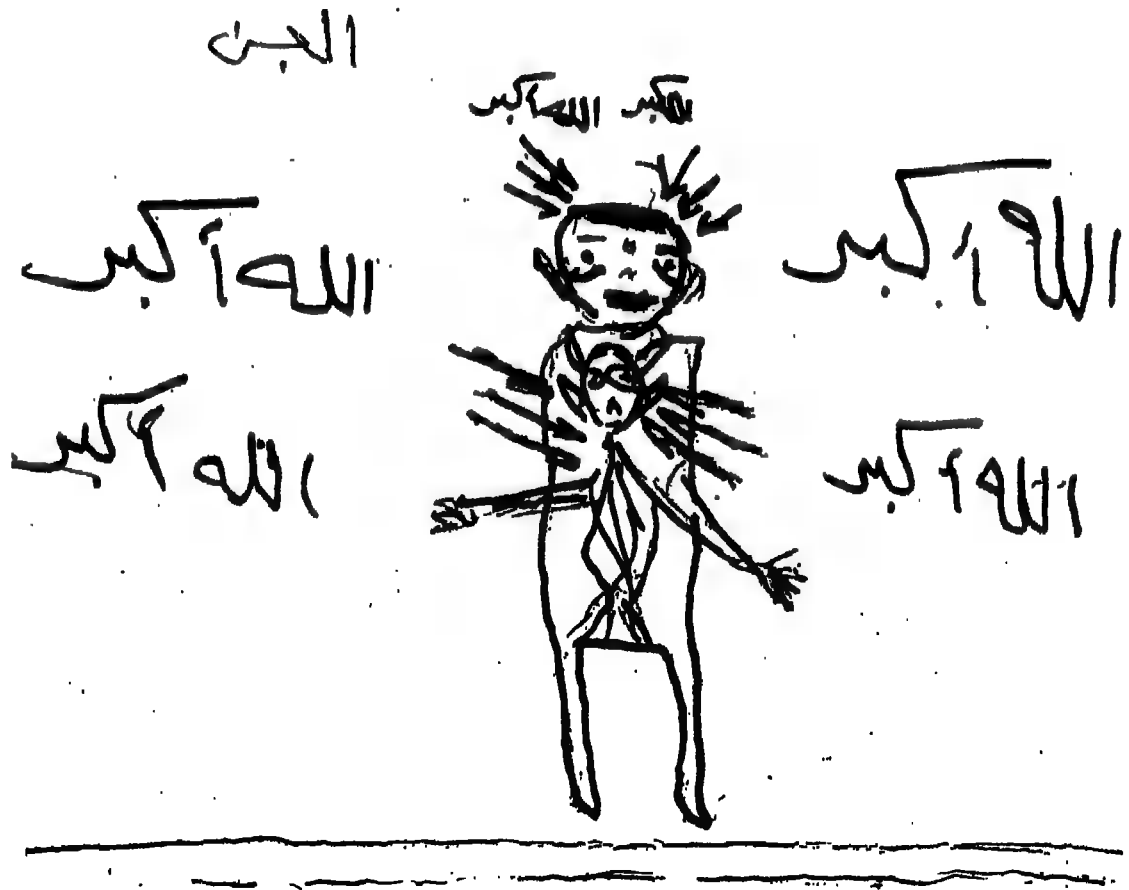 الجن
الله أكبر الله أكبر
الله أكبر الله أكبر
الله أكبر الله أكبر